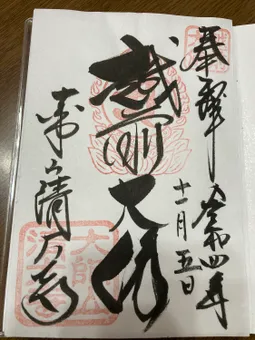 奉拝 令和四年
十一月五日
越前大佛
大師山清大寺